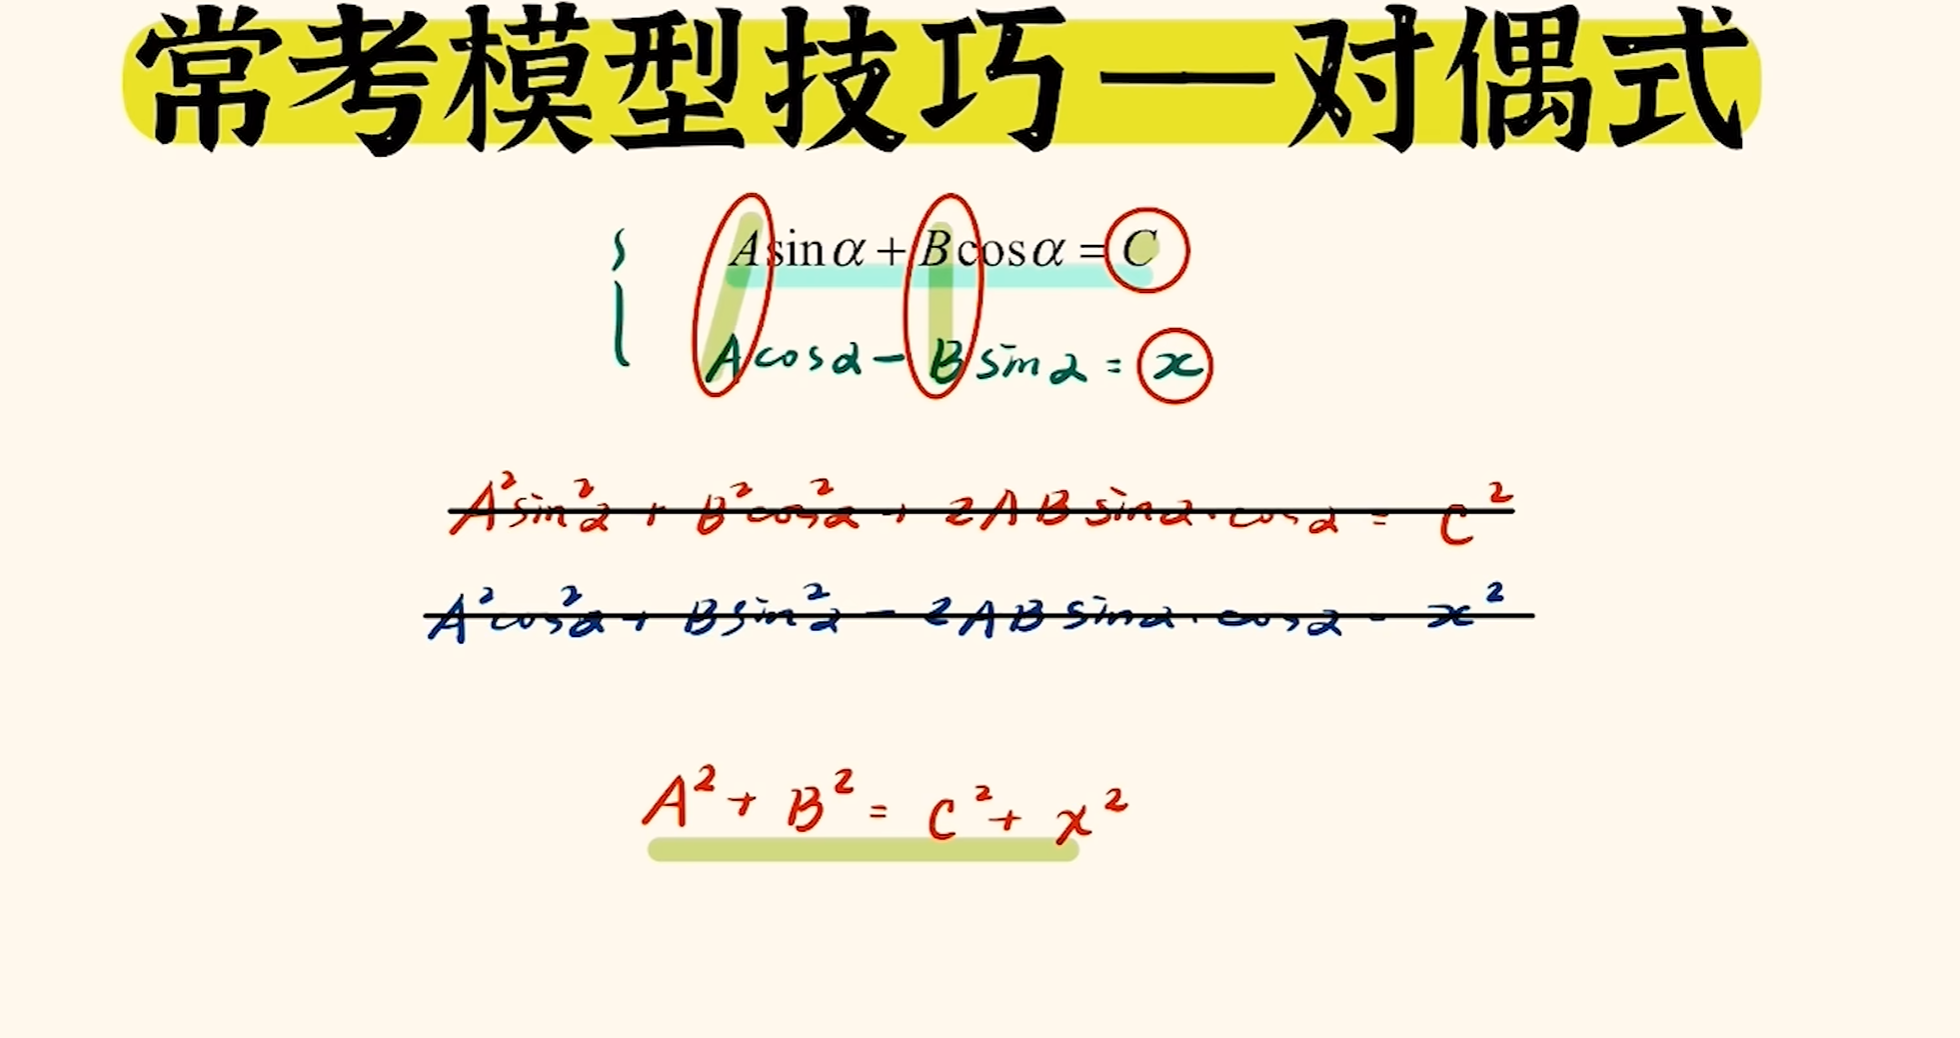 常考模型技巧——对偶式
Asinα+Bcosα=C
Acosα-Bsinα=x
A²sin²α+B²cos²α+2ABsinα·cosα=C²
A²cos²α+Bsin²α-2ABsinα·cosα=x²
A²+B²=C²+x²